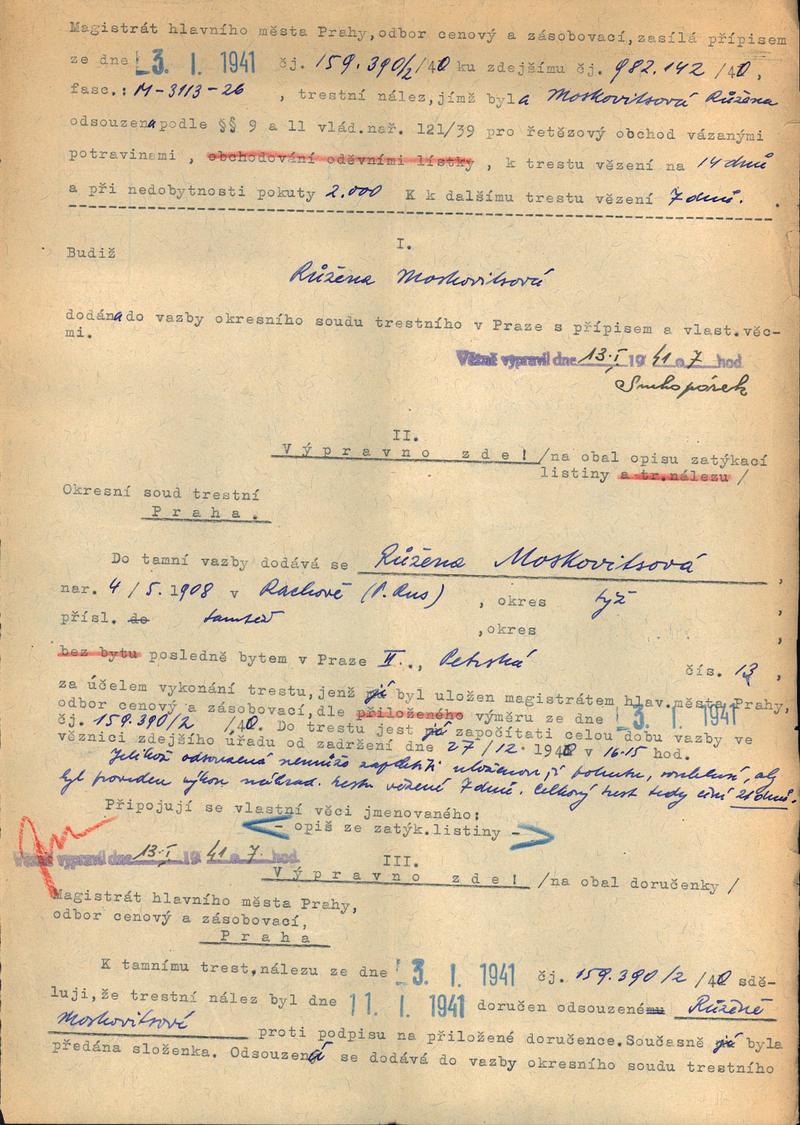 Magistrát hlavního města Prahy, odbor cenový a zásobovací, zasílá přípisem
ze dne 3. I. 1941 čj. 159.390/2 /40 ku zdejšímu čj. 982.142 /40 ,
fasc.: M-3113-26 , trestní nález, jímž byla Moskovitsová Růžena
odsouzena podle §§ 9 a 11 vlád.nař. 121/39 pro řetězový obchod vázanými
potravinami , obchodování oděvními lístky , k trestu vězení na 14 dnů
a při nedobytnosti pokuty 2.000 K k dalšímu trestu vězení 7 dnů. .
I.
Budiž
Růžena Moskovitsová
dodána do vazby okresního soudu trestního v Praze s přípisem a vlast.věc-
mi.
Vězně vypravil dne 13.I. 19 41 o 7 hod
II.
Výpravno zde! /na obal opisu zatýkací
listiny a tr.nálezu /
Okresní soud trestní
Praha.
Do tamní vazby dodává se Růžena Moskovitsová ,
nar. 4 / 5. 1908 v Rachově (P. Rus) , okres týž
přísl. do tamtéž ,okres
bez bytu posledně bytem v Praze II. , Petrská čís. 13 ,
za účelem vykonání trestu, jenž jí byl uložen magistrátem hlav.města Prahy,
odbor cenový a zásobovací, dle přiloženého výměru ze dne 3. I. 1941
čj. 159.390/2 /40. Do trestu jest jí započítati celou dobu vazby ve
věznici zdejšího úřadu od zadržení dne 27 / 12. 1940 v 16.15 hod.
Jelikož odsouzená nemůže zaplatiti uloženou jí pokutu, souhlasí, aby
byl proveden výkon náhrad. trestu vězení 7 dnů. Celkový trest tedy činí 21 dnů.
Připojují se vlastní věci jmenovaného:
- opiš ze zatýk.listiny -
Vězně vypravil dne 13.I. 19 41 o 7. hod
III.
Výpravno zde! /na obal doručenky /
Magistrát hlavního města Prahy,
odbor cenový a zásobovací,
Praha
K tamnímu trest.nálezu ze dne 3. I. 1941 čj. 159.390/2 /40 sdě-
luji, že trestní nález byl dne 11. I. 1941 doručen odsouzenému Růženě
Moskovitsové proti podpisu na přiložené doručence. Současně jí byla
předána složenka. Odsouzená se dodává do vazby okresního soudu trestního